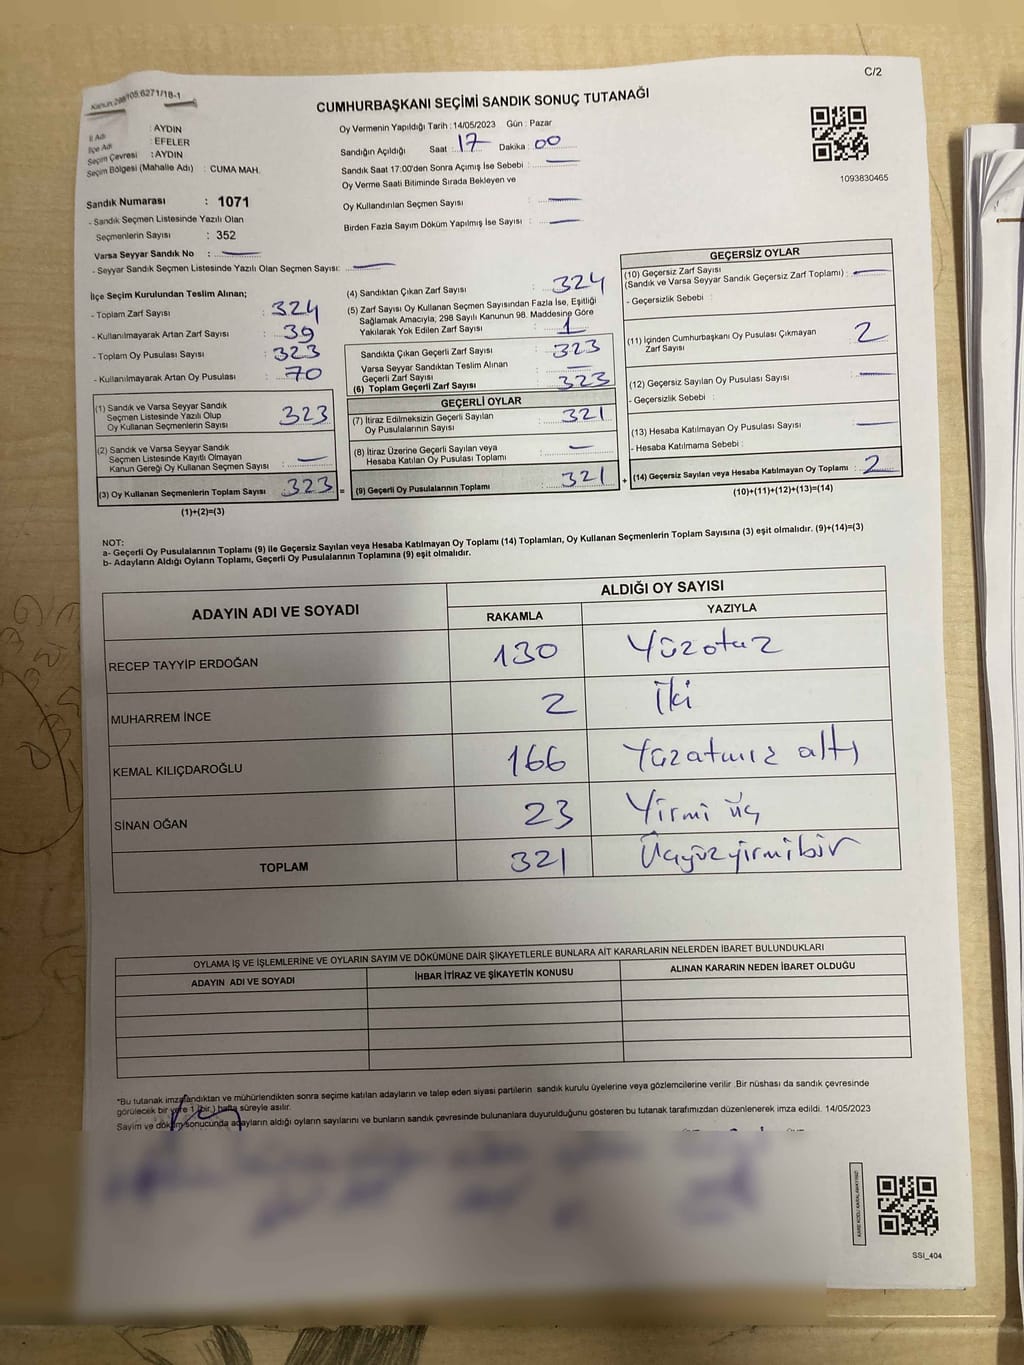 C/2
Kanun:298/105:6271/18-1
CUMHURBAŞKANI SEÇİMİ SANDIK SONUÇ TUTANAĞI
İl Adı : AYDIN
İlçe Adı : EFELER
Seçim Çevresi : AYDIN
Seçim Bölgesi (Mahalle Adı) : CUMA MAH.
Oy Vermenin Yapıldığı Tarih : 14/05/2023 Gün : Pazar
Sandığın Açıldığı Saat : 17 Dakika : 00
Sandık Saat 17:00'den Sonra Açımış İse Sebebi :
Oy Verme Saati Bitiminde Sırada Bekleyen ve
Oy Kullandırılan Seçmen Sayısı :
Birden Fazla Sayım Döküm Yapılmış İse Sayısı :
1093830465
Sandık Numarası : 1071
- Sandık Seçmen Listesinde Yazılı Olan
Seçmenlerin Sayısı : 352
Varsa Seyyar Sandık No :
- Seyyar Sandık Seçmen Listesinde Yazılı Olan Seçmen Sayısı:
İlçe Seçim Kurulundan Teslim Alınan;
- Toplam Zarf Sayısı : 324
- Kullanılmayarak Artan Zarf Sayısı : 39
- Toplam Oy Pusulası Sayısı : 323
- Kullanılmayarak Artan Oy Pusulası : 70
(1) Sandık ve Varsa Seyyar Sandık
Seçmen Listesinde Yazılı Olup
Oy Kullanan Seçmenlerin Sayısı : 323
(2) Sandık ve Varsa Seyyar Sandık
Seçmen Listesinde Kayıtlı Olmayan
Kanun Gereği Oy Kullanan Seçmen Sayısı : —
(3) Oy Kullanan Seçmenlerin Toplam Sayısı : 323 =
(1)+(2)=(3)
(4) Sandıktan Çıkan Zarf Sayısı : 324
(5) Zarf Sayısı Oy Kullanan Seçmen Sayısından Fazla İse, Eşitliği
Sağlamak Amacıyla; 298 Sayılı Kanunun 98. Maddesine Göre
Yakılarak Yok Edilen Zarf Sayısı : 1
Sandıkta Çıkan Geçerli Zarf Sayısı : 323
Varsa Seyyar Sandıktan Teslim Alınan
Geçerli Zarf Sayısı : —
(6) Toplam Geçerli Zarf Sayısı : 323
GEÇERLİ OYLAR
(7) İtiraz Edilmeksizin Geçerli Sayılan
Oy Pusulalarının Sayısı : 321
(8) İtiraz Üzerine Geçerli Sayılan veya
Hesaba Katılan Oy Pusulası Toplamı : —
(9) Geçerli Oy Pusulalarının Toplamı : 321 +
GEÇERSİZ OYLAR
(10) Geçersiz Zarf Sayısı
(Sandık ve Varsa Seyyar Sandık Geçersiz Zarf Toplamı) : —
- Geçersizlik Sebebi :
(11) İçinden Cumhurbaşkanı Oy Pusulası Çıkmayan
Zarf Sayısı : 2
(12) Geçersiz Sayılan Oy Pusulası Sayısı : —
- Geçersizlik Sebebi :
(13) Hesaba Katılmayan Oy Pusulası Sayısı : —
- Hesaba Katılmama Sebebi :
(14) Geçersiz Sayılan veya Hesaba Katılmayan Oy Toplamı : 2
(10)+(11)+(12)+(13)=(14)
NOT:
a- Geçerli Oy Pusulalarının Toplamı (9) ile Geçersiz Sayılan veya Hesaba Katılmayan Oy Toplamı (14) Toplamları, Oy Kullanan Seçmenlerin Toplam Sayısına (3) eşit olmalıdır. (9)+(14)=(3)
b- Adayların Aldığı Oyların Toplamı, Geçerli Oy Pusulalarının Toplamına (9) eşit olmalıdır.
ADAYIN ADI VE SOYADI
ALDIĞI OY SAYISI
RAKAMLA YAZIYLA
RECEP TAYYİP ERDOĞAN 130 Yüzotuz
MUHARREM İNCE 2 İki
KEMAL KILIÇDAROĞLU 166 Yüzatmız altı
SİNAN OĞAN 23 Yirmi üç
TOPLAM 321 Üçyüzyirmibir
OYLAMA İŞ VE İŞLEMLERİNE VE OYLARIN SAYIM VE DÖKÜMÜNE DAİR ŞİKAYETLERLE BUNLARA AİT KARARLARIN NELERDEN İBARET BULUNDUKLARI
ADAYIN ADI VE SOYADI İHBAR İTİRAZ VE ŞİKAYETİN KONUSU ALINAN KARARIN NEDEN İBARET OLDUĞU
*Bu tutanak imzalandıktan ve mühürlendikten sonra seçime katılan adayların ve talep eden siyasi partilerin sandık kurulu üyelerine veya gözlemcilerine verilir .Bir nüshası da sandık çevresinde
görülecek bir yere 1 (bir.) hafta süreyle asılır.
Sayım ve döküm sonucunda adayların aldığı oyların sayılarını ve bunların sandık çevresinde bulunanlara duyurulduğunu gösteren bu tutanak tarafımızdan düzenlenerek imza edildi. 14/05/2023
SSI_404